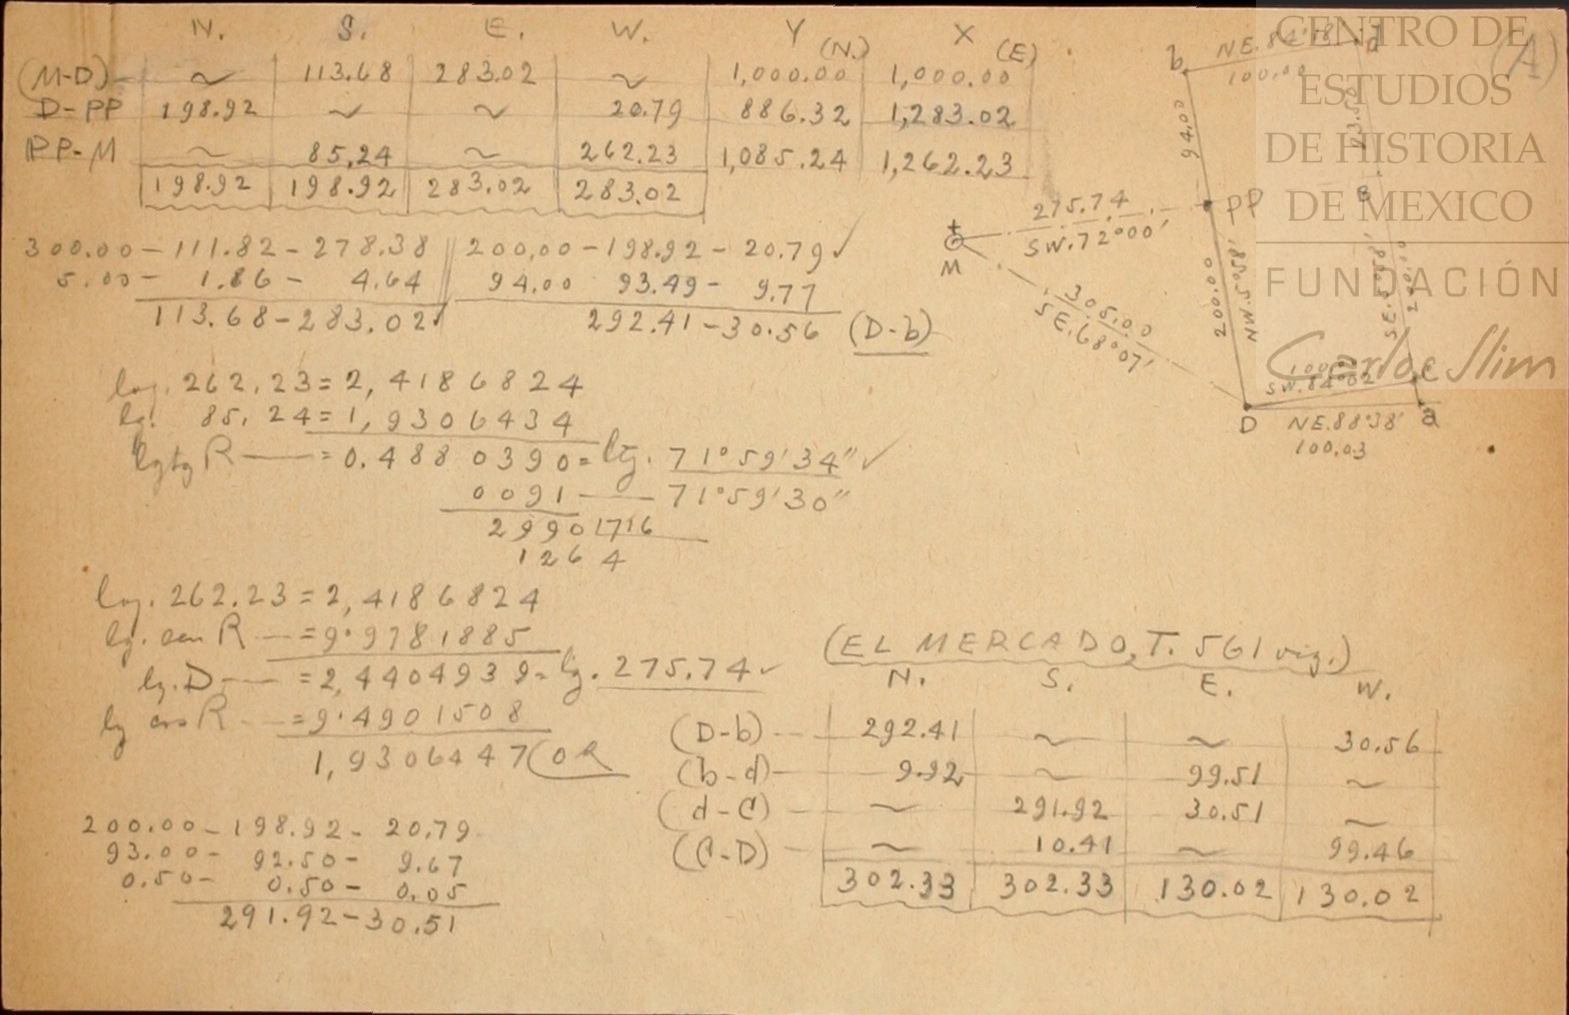 N. S. E. W. Y (N.) X (E)
(M-D) ~ 113.68 283.02 ~ 1,000.00 1,000.00
D-PP 198.92 ~ ~ 20.79 886.32 1,283.02
PP-M ~ 85,24 ~ 262.23 1,085.24 1,262.23
198.92 198.92 283,02 283.02
300.00 - 111.82 - 278.38 200,00 - 198.92 - 20.79 ✓
5.00 - 1.86 - 4.64 94.00 93.49 - 9.77
113.68 - 283.02 ✓ 292.41 - 30.56 (D-b)
log. 262.23 = 2,4186824
lg. 85,24 = 1,9306434
lgtg R — = 0.4880390 = ltg. 71°59'34" ✓
0091 — 71°59'30"
2990 1716
1264
log. 262.23 = 2,4186824
lg. sen R — = 9.9781885
lg. D — = 2,4404939 = lg. 275.74 ✓
lg cos R — = 9.4901508
1,9306447 (OR
200.00 - 198.92 - 20.79
93.00 - 92.50 - 9.67
0.50 - 0.50 - 0.05
291.92 - 30.51
(EL MERCADO, T. 561 vig.)
N. S. E. W.
(D-b) 292.41 ~ ~ 30.56
(b-d) 9.92 ~ 99.51 ~
(d-C) ~ 291.92 30.51 ~
(C-D) ~ 10.41 ~ 99.46
302.33 302.33 130.02 130.02
b NE. 84°18' d
100.00
(A)
94.00
275.74
SW. 72°00'
PP
B
M
305.00
SE. 68°07'
200.00
NW. 5°58'
SE. 5°58'
200.00
100.00
SW. 84°02'
D NE. 88°38' a
100.03
CENTRO DE
ESTUDIOS
DE HISTORIA
DE MEXICO
FUNDACIÓN
Carlos Slim